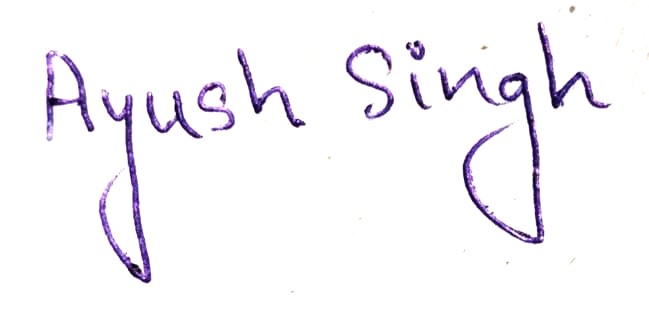 Ayush Singh